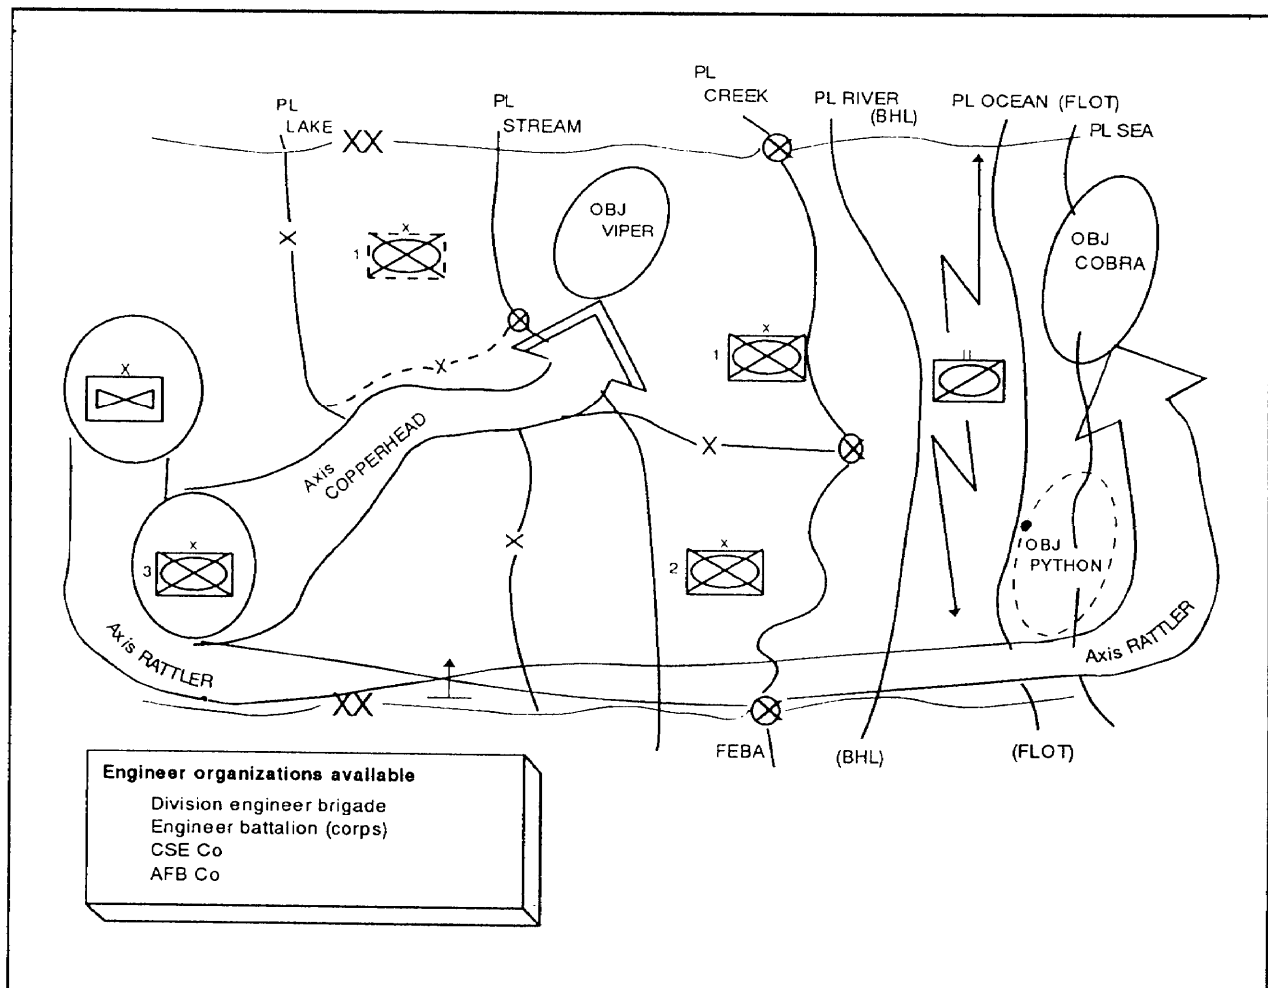 PL
LAKE
XX
PL
STREAM
PL
CREEK
PL RIVER
(BHL)
PL OCEAN (FLOT)
PL SEA
OBJ
VIPER
OBJ
COBRA
X
X
1
X
X
1
II
X
X
Axis
COPPERHEAD
X
X
3
X
X
2
OBJ
PYTHON
Axis RATTLER
Axis RATTLER
XX
FEBA
(BHL)
(FLOT)
Engineer organizations available
Division engineer brigade
Engineer battalion (corps)
CSE Co
AFB Co